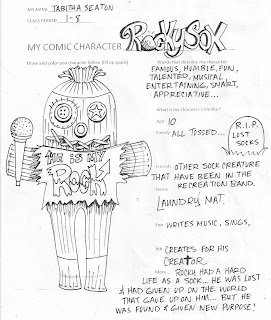 MY NAME TABITHA SEATON
CLASS PERIOD 1-8
MY COMIC CHARACTER ROCKY SOX
Draw and color you character below (fill up space)
Words that describe my character:
FAMOUS, HUMBLE, FUN,
TALENTED, MUSICAL
ENTERTAINING, SMART,
APPRECIATIVE...
What is my character's life like?
Age 10
Family ALL TOSSED...
R.I.P.
LOST
SOCKS
Friends OTHER SOCK CREATURE
THAT HAVE BEEN IN THE
RECREATION BAND.
Home
LAUNDRY MAT.
Fun WRITES MUSIC, SINGS,
Job CREATES FOR HIS
CREATOR
More... ROCKY HAD A HARD
LIFE AS A SOCK... HE WAS LOST
& HAD GIVEN UP ON THE WORLD
THAT GAVE UP ON HIM... BUT HE
WAS FOUND & GIVEN NEW PURPOSE!
ROCK